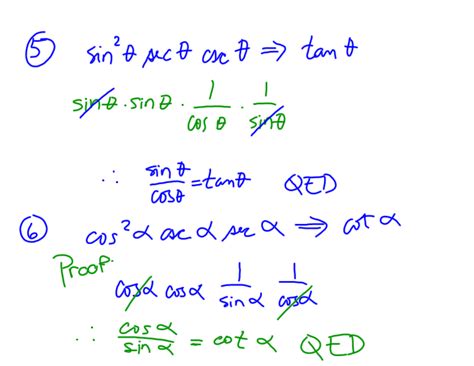 ⑤ sin²θ sec θ csc θ ⇒ tan θ
sinθ · sin θ · 1/cos θ · 1/sinθ
∴ sin θ/cosθ = tanθ QED
⑥ cos²α csc α sec α ⇒ cot α
Proof.
cosα cosα 1/sinα 1/cosα
∴ cos α/sin α = cot α QED